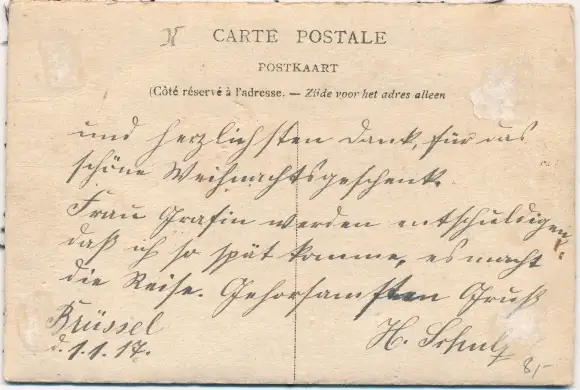 CARTE POSTALE
POSTKAART
(Côté réservé à l'adresse. — Zijde voor het adres alleen
und herzlichsten Dank, für das
schöne Weihnachtsgeschenk.
Frau Gräfin werden entschuldigen,
daß ich so spät komme, es macht
die Reise. Gehorsamsten Gruß
Brüssel
d. 1.1.17.
H. Schulz
8,-